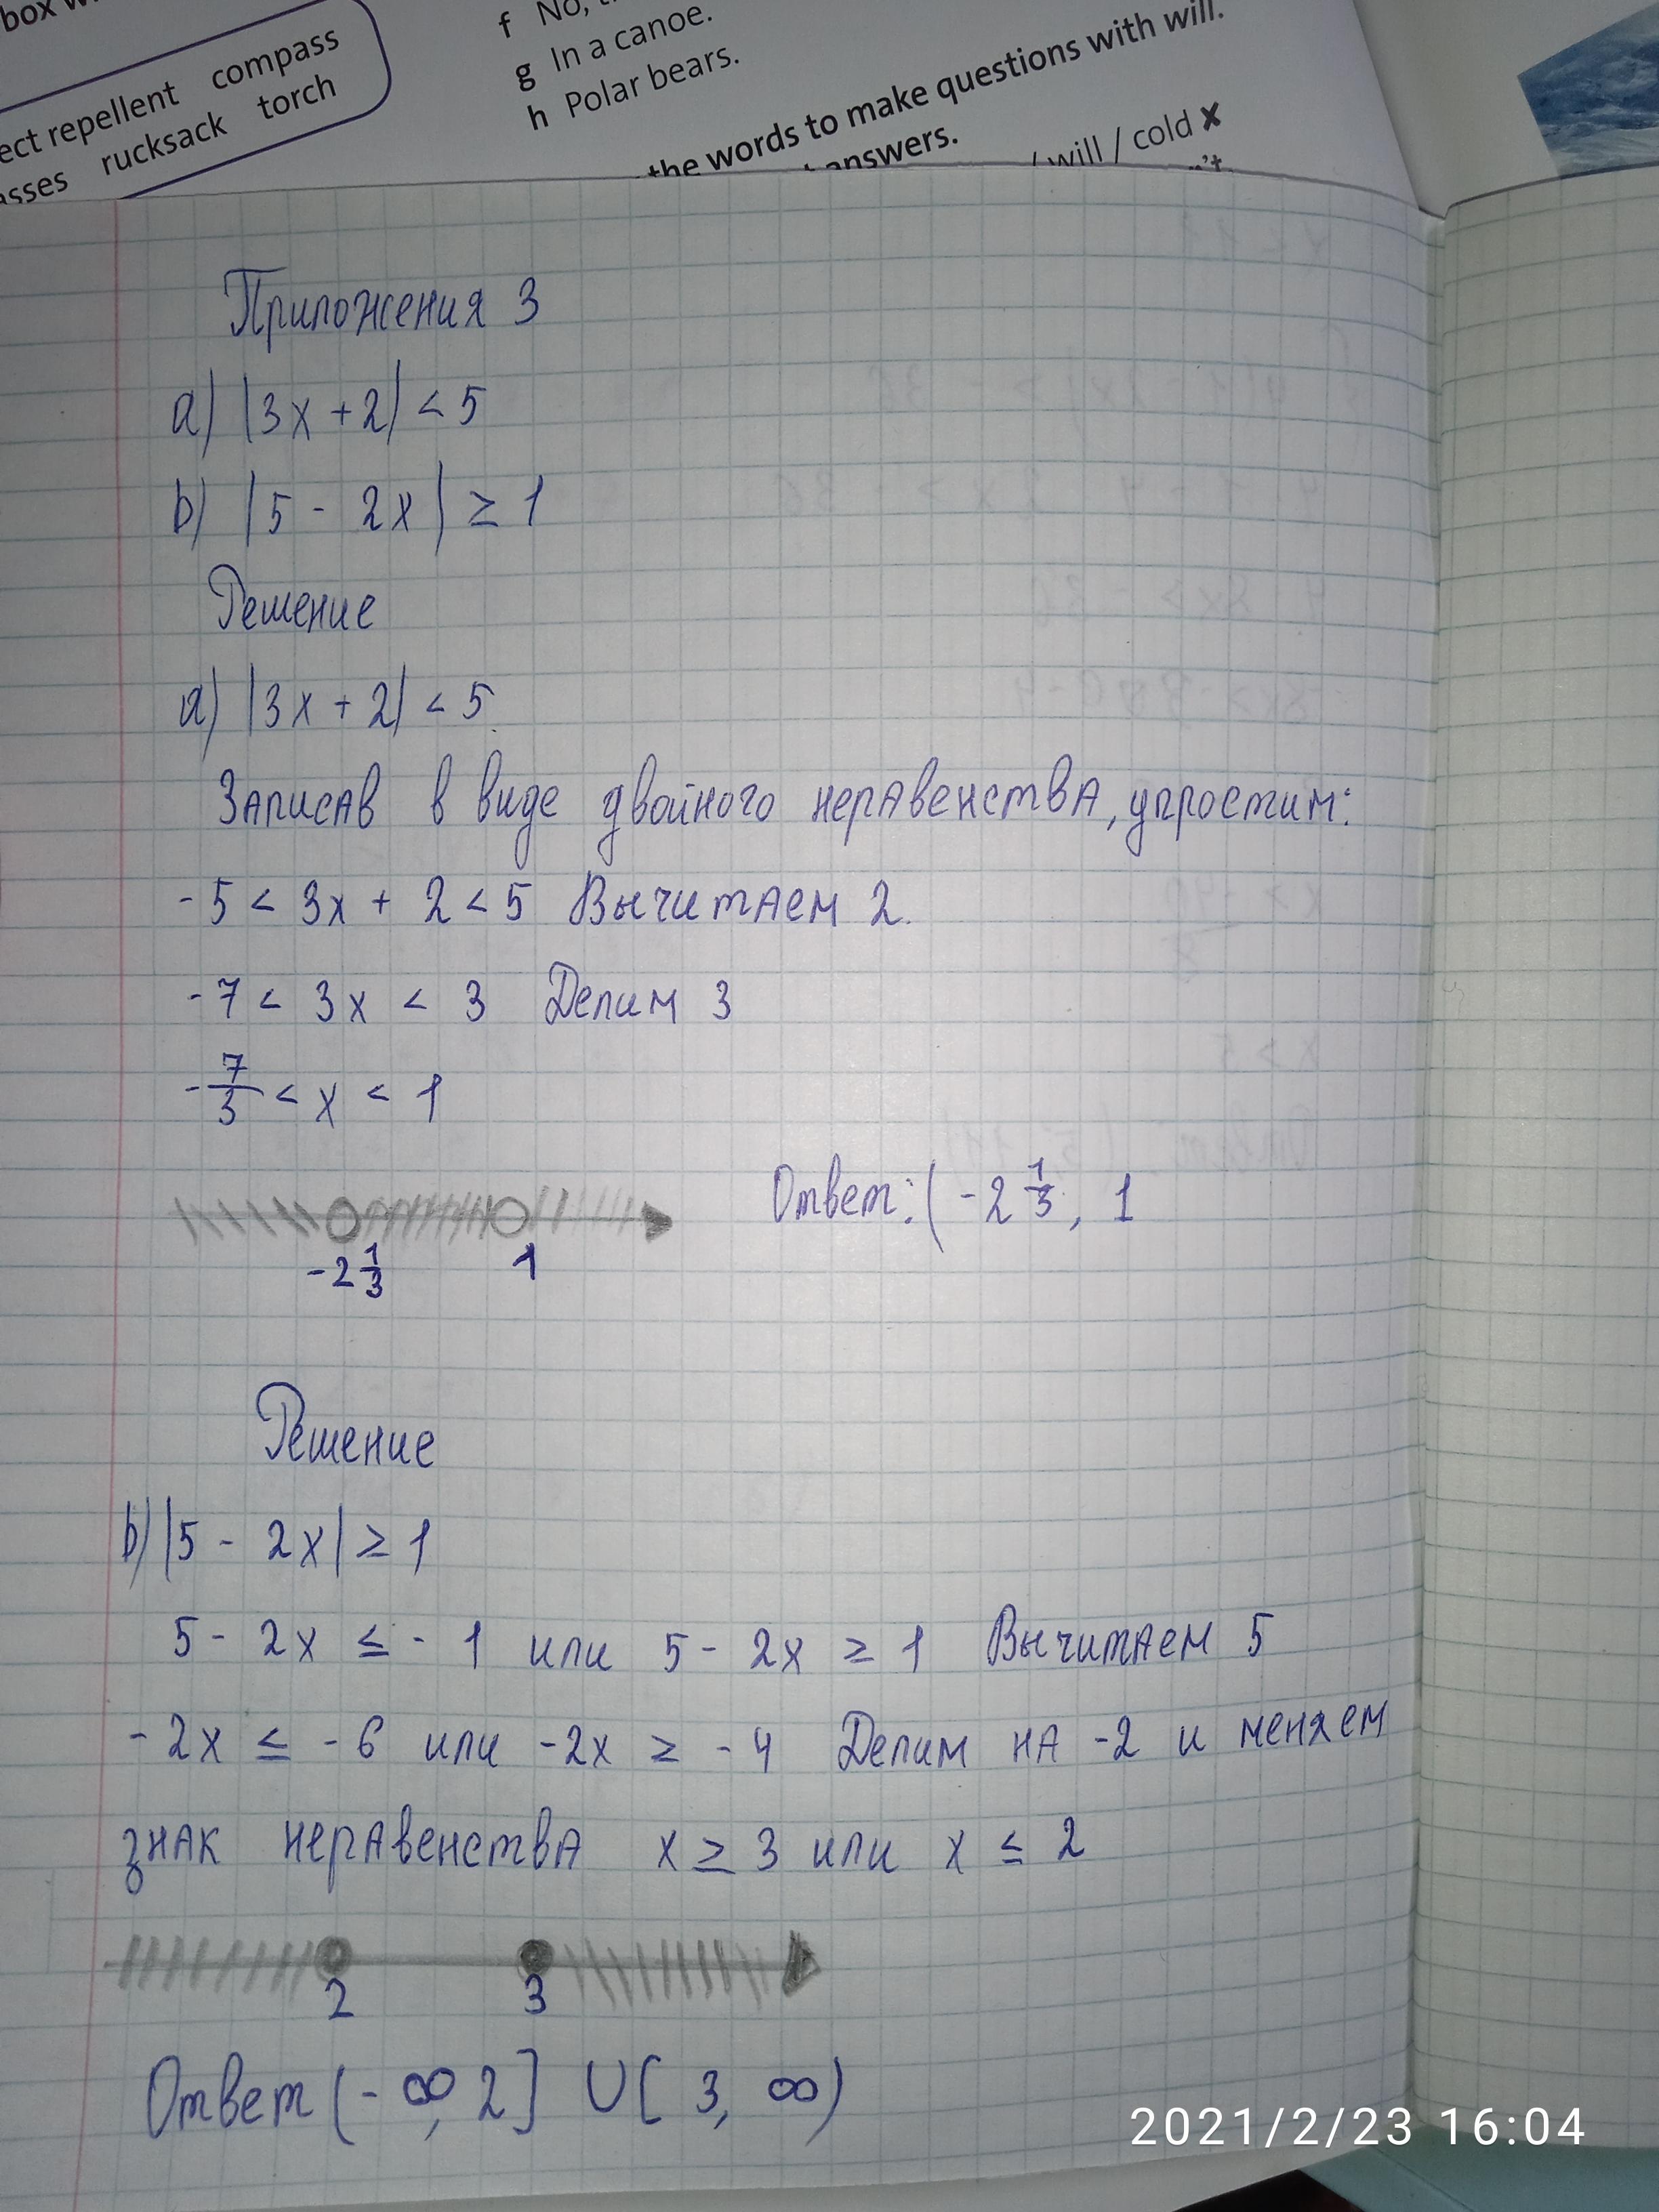 box
ect repellent compass
asses rucksack torch
f No,
g In a canoe.
h Polar bears.
the words to make questions with will.
answers.
/ will / cold ✗
Приложения 3
a) |3x + 2| < 5
b) |5 - 2x| ≥ 1
Решение
a) |3x + 2| < 5
Записав в виде двойного неравенства, упростим:
-5 < 3x + 2 < 5 Вычитаем 2.
-7 < 3x < 3 Делим 3
-7/3 < x < 1
Ответ: (-2 1/3, 1
-2 1/3 1
Решение
b) |5 - 2x| ≥ 1
5 - 2x ≤ - 1 или 5 - 2x ≥ 1 Вычитаем 5
-2x ≤ -6 или -2x ≥ -4 Делим на -2 и меняем
знак неравенства x ≥ 3 или x ≤ 2
2 3
Ответ (-∞, 2] ∪ [3, ∞)
2021/2/23 16:04